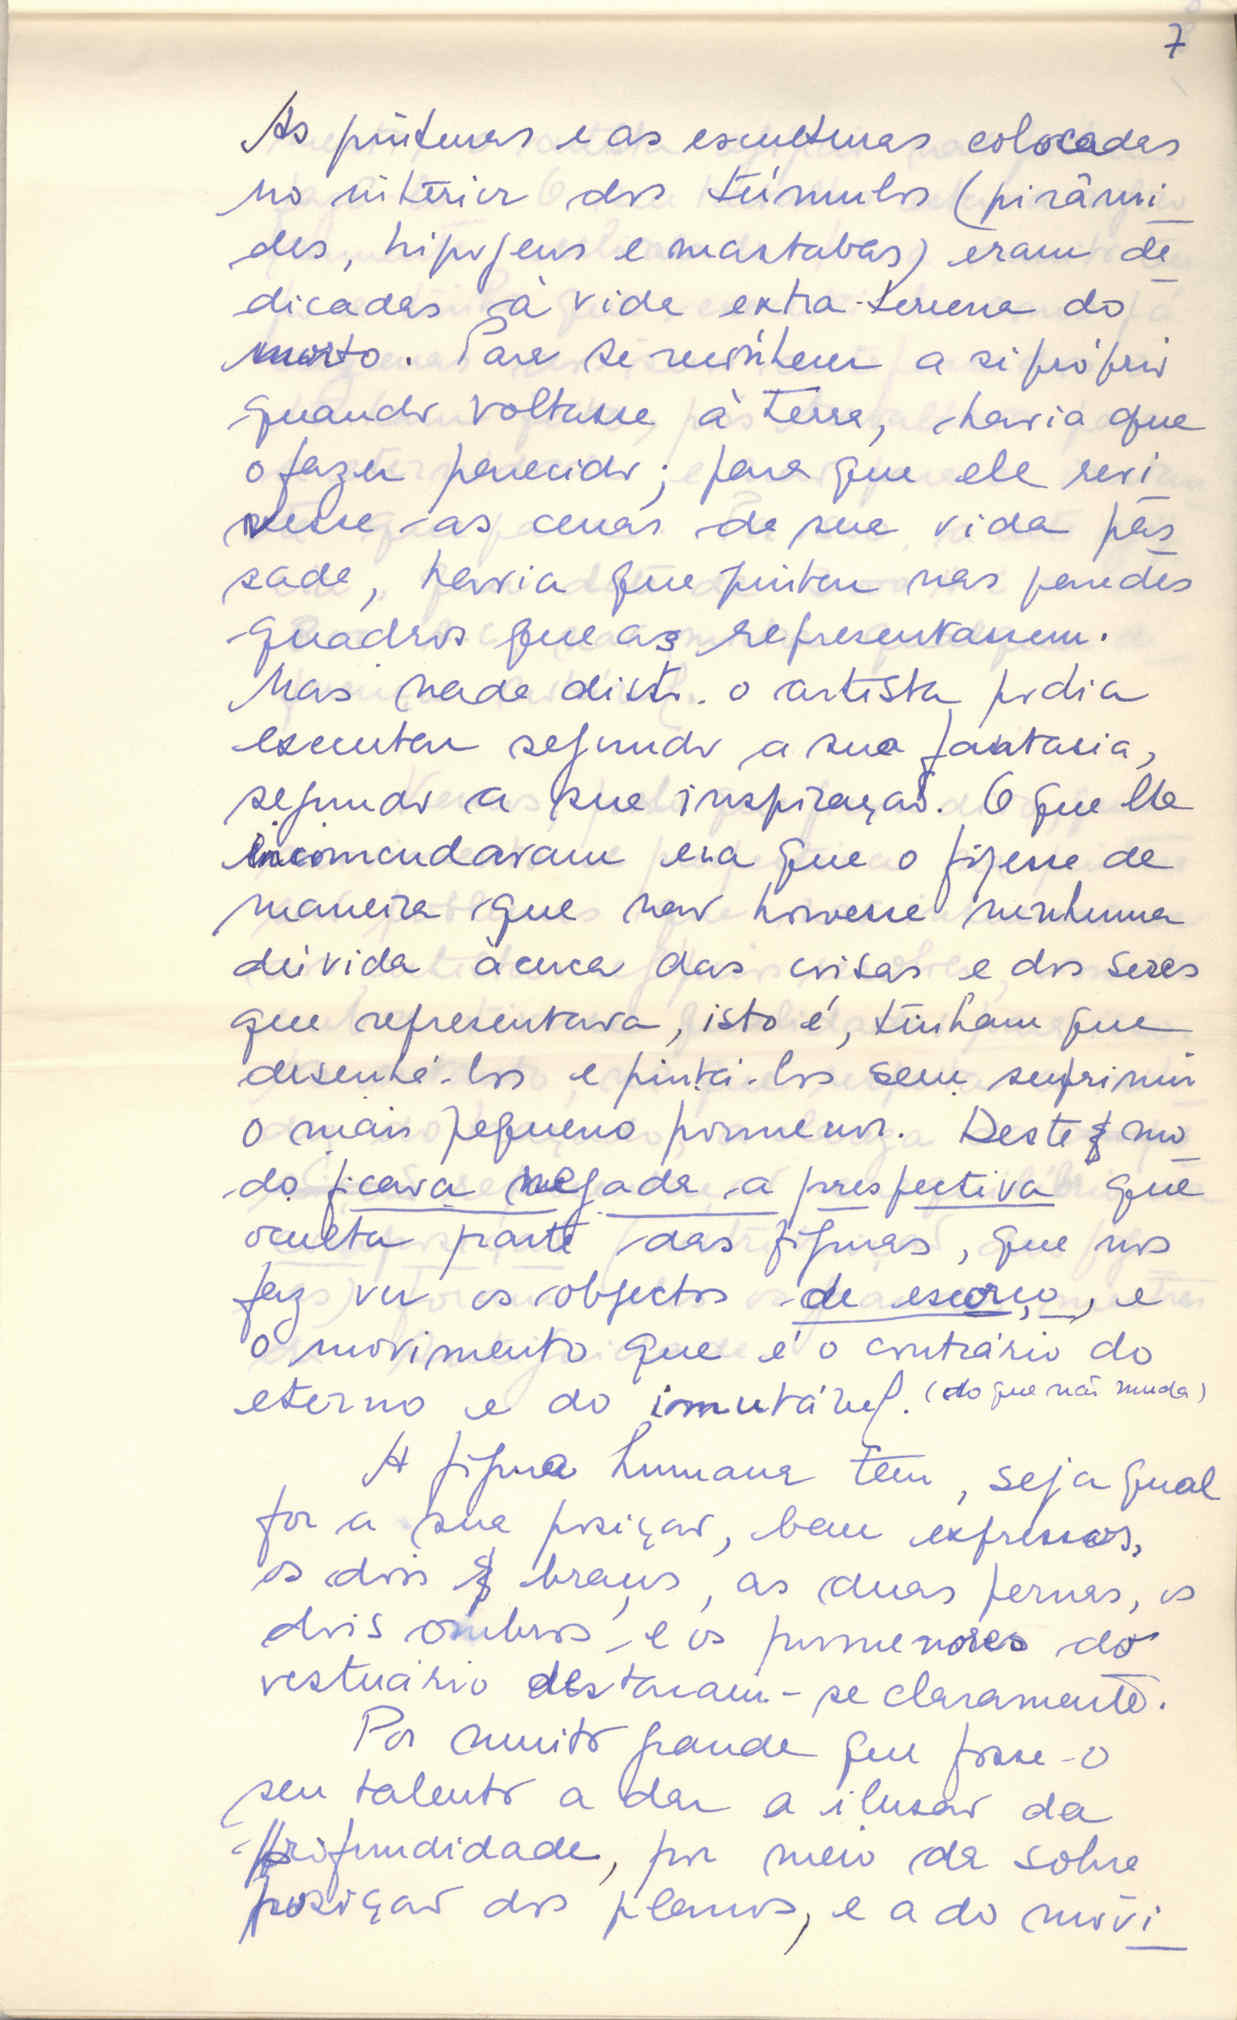 7
As pinturas e as esculturas colocadas
no interior dos túmulos (pirâmi
des, hipogeus e mastabas) eram de
dicadas à vida extra-terrena do
morto. Para se reconhecer a si próprio
quando voltasse à terra, havia que
o fazer parecido; para que ele revi
vesse as cenas da sua vida pas
sada, havia que pintar nas paredes
quadros que as representassem.
Mas nada disto o artista podia
executar segundo a sua fantasia,
segundo a sua inspiração. O que lhe
encomendavam era que o fizesse de
maneira que não houvesse nenhuma
dúvida àcerca das coisas e dos seres
que representava, isto é, tinham que
desenhá-los e pintá-los sem suprimir
o mais pequeno pormenor. Deste mo
do ficava negada a perspectiva que
oculta parte das figuras, que nos
faz ver os objectos de escorço, e
o movimento que é o contrário do
eterno e do imutável. (do que não muda)
A figura humana tem, seja qual
for a sua posição, bem expressos,
os dois braços, as duas pernas, os
dois ombros e os pormenores do
vestuário destacam-se claramente.
Por muito grande que fosse o
seu talento a dar a ilusão da
profundidade, por meio da sobre
posição dos planos, e a do movi